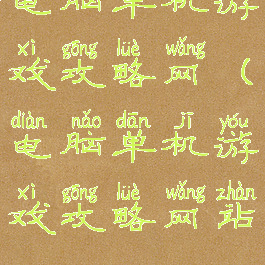 电脑单机游
xì gōng lüè wǎng
戏攻略网（
diàn nǎo dān jī yóu
电脑单机游
xì gōng lüè wǎng zhàn
戏攻略网站